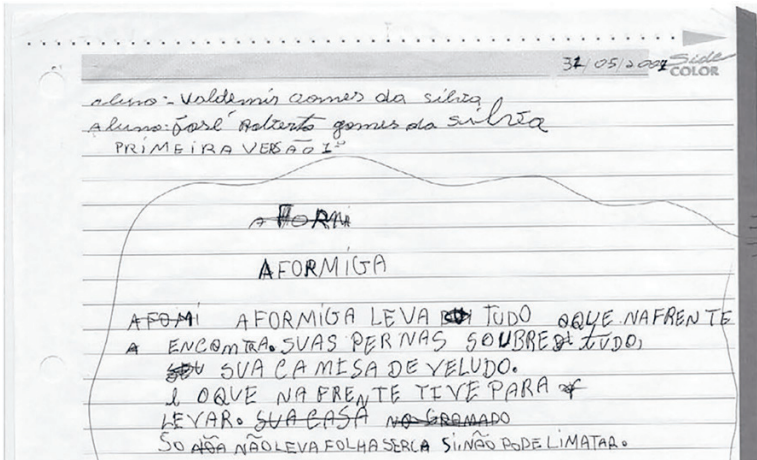 31/05/2001
Side
COLOR
aluno:- Valdemir Gomes da silva
Aluno: José Roberto gomes da silva
PRIMEIRA VERSÃO 1º
A FORMi
AFORMIGA
AFOMi AFORMIGA LEVA TUDO OQUE NAFRENTE
A ENCOMTRA. SUAS PERNAS SOUBRE TUDO,
SUA CAMISA DE VELUDO.
l OQUE NA FRENTE TIVE PARA
LEVAR. SUA CASA NO GROMADO
SO NÃOLEVA FOLHA SERCA SiNÃO PODE LIMATAR.